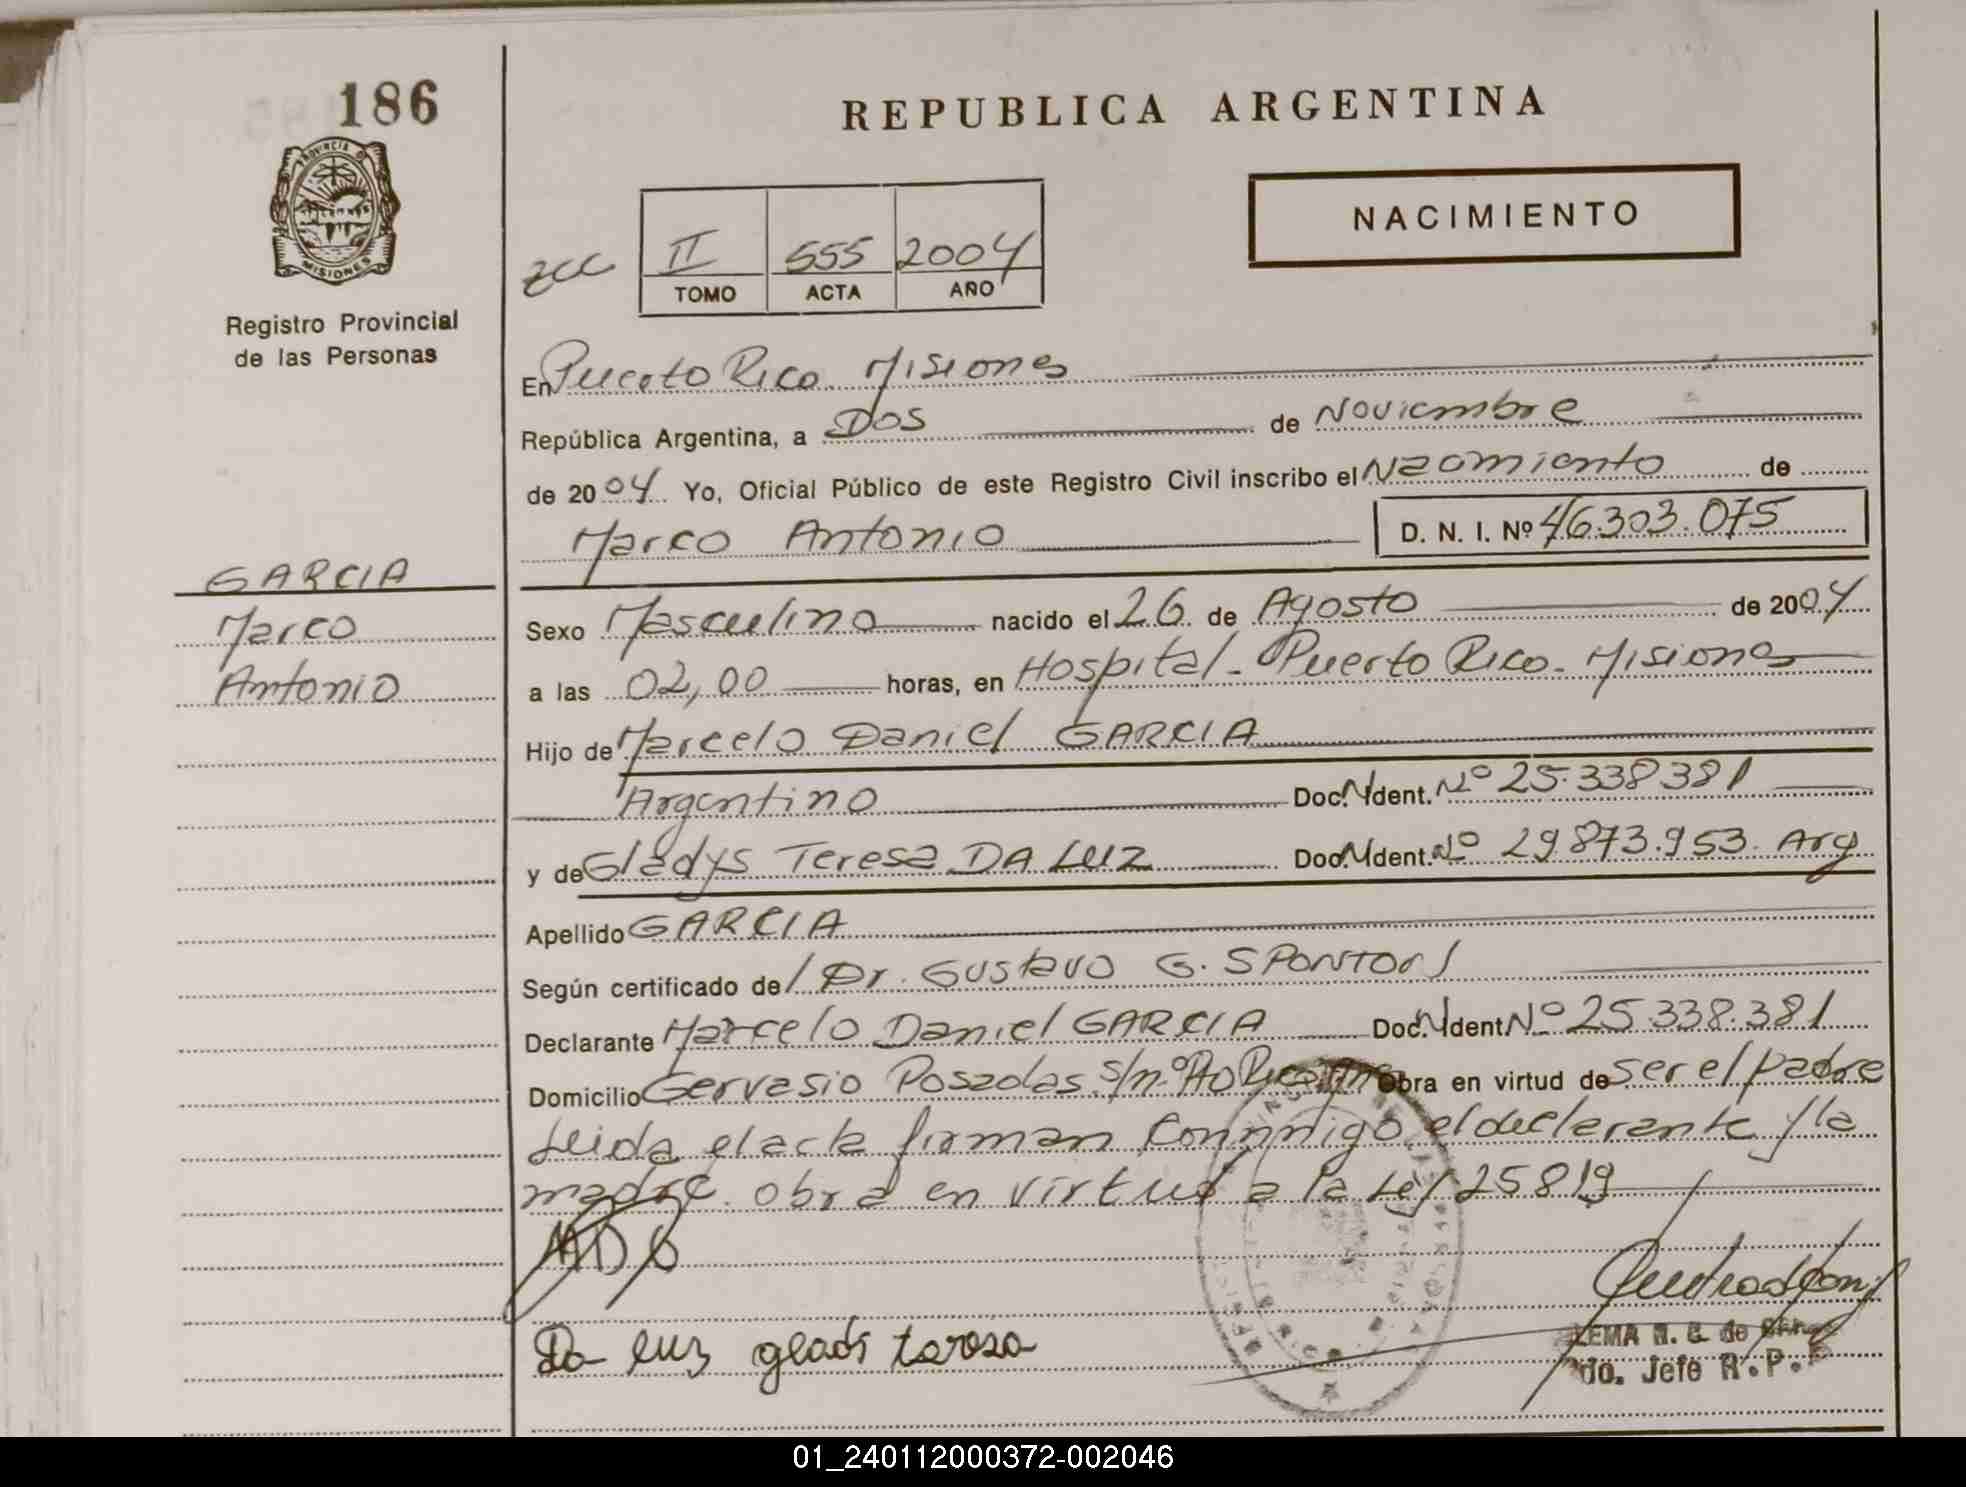 186
REPUBLICA ARGENTINA
PROVINCIA DE
MISIONES
Registro Provincial
de las Personas
NACIMIENTO
II 555 2004
TOMO ACTA AÑO
En Puerto Rico. Misiones
República Argentina, a Dos de Noviembre
de 2004 Yo, Oficial Público de este Registro Civil inscribo el Nacimiento de
Marco Antonio D. N. I. Nº 46.303.075
GARCIA
Marco
Antonio
Sexo Masculino nacido el 26 de Agosto de 2004
a las 02,00 horas, en Hospital - Puerto Rico - Misiones
Hijo de Marcelo Daniel GARCIA
Argentino Doc. Ident. Nº 25.338381
y de Gladys Teresa DA LUZ Doc. Ident. Nº 29873.953. Arg
Apellido GARCIA
Según certificado de Dr. Gustavo G. SPONTON
Declarante Marcelo Daniel GARCIA Doc. Ident Nº 25.338.381
Domicilio Gervasio Posadas s/nº Pto Rico Mnes obra en virtud de ser el padre
Leida el acta firman Connmigo el declarante y la
madre. obra en virtud a la Ley 25819
MDG
Da luz gladis taresa
LEMA N. G. de
do. Jefe R.P.
01_240112000372-002046